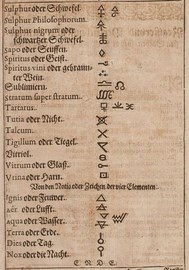 Sulphur oder Schwefel.
Sulphur Philosophorum.
Sulphur nigrum oder
schwartzer Schwefel.
Sapo oder Seuffen.
Spiritus oder Geist.
Spiritus vini oder gebrann-
ter Wein.
Sublimiern.
Stratum super stratum.
Tartarus.
Tutia oder Nicht.
Talcum.
Tigillum oder Tiegel.
Vitriol.
Vitrum oder Glaß.
Vrina oder Harn.
Von den Notis oder Zeichen der vier Elementen.
Ignis oder Feuwer.
aër oder Lufft.
aqua oder Wasser.
Terra oder Erde.
Dies oder Tag.
Nox oder die Nacht.
E N D E.